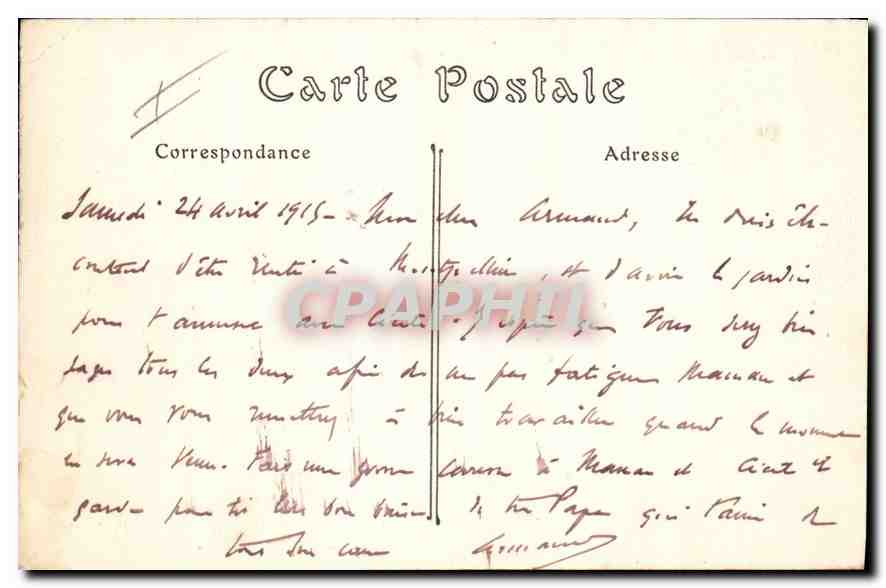 Carte Postale
Correspondance
Adresse
Samedi 24 avril 1915 - Mon cher Armand, tu dois être
content d'être rentré à Montpellier, et d'avoir le jardin
pour t'amuser avec J'espère que vous serez bien
sages tous les deux afin de ne pas fatiguer Maman et
que vous vous remettrez à bien travailler quand le moment
en sera venu. Fais une grosse caresse à Maman et et
garde pour toi les bons baisers de ton Papa qui t'aime de
tout son coeur Armand
CPAPHIL